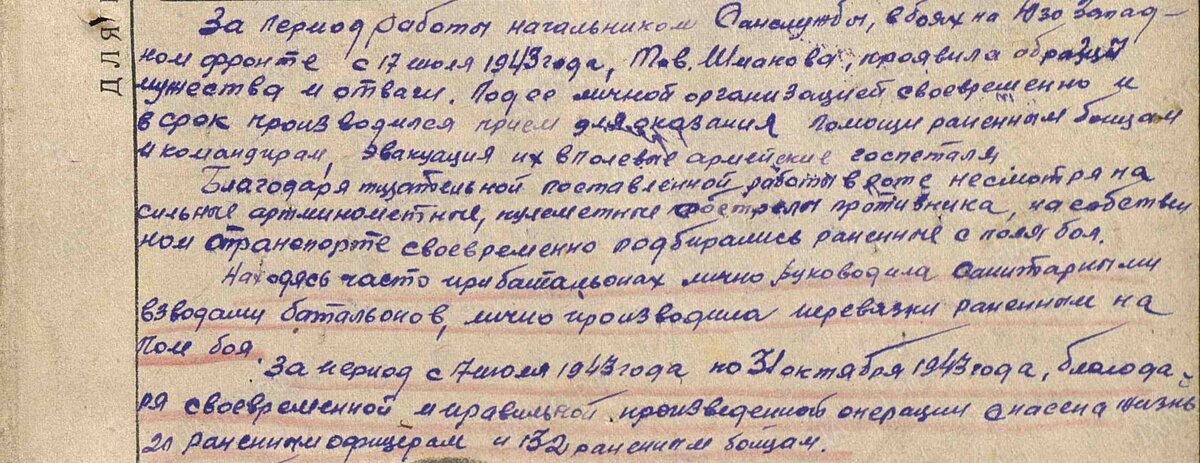 ДЛЯ
За период работы начальником Санслужбы, в боях на Юго Запад-
ном фронте с 17 июля 1943 года, Тов. Шмакова, проявила образцы
мужества и отваги. Под ее личной организацией своевременно и
в срок производился прием для оказания помощи раненным бойцам
и командирам, эвакуация их в полевые армейские госпеталя.
Благодаря тщательной поставленной работы в роте несмотря на
сильные артминометные, пулеметные обстрелы противника, на собствен
ном транспорте своевременно подбирались раненные с поля боя.
Находясь часто при батальонах лично руководила санитарными
взводами батальонов, лично производила перевязки раненным на
поле боя.
За период с 17 июля 1943 года по 31 октября 1943 года, благода-
ря своевременной и правильной произведенной операции спасена жизнь
раненным офицерам и 132 раненным бойцам.